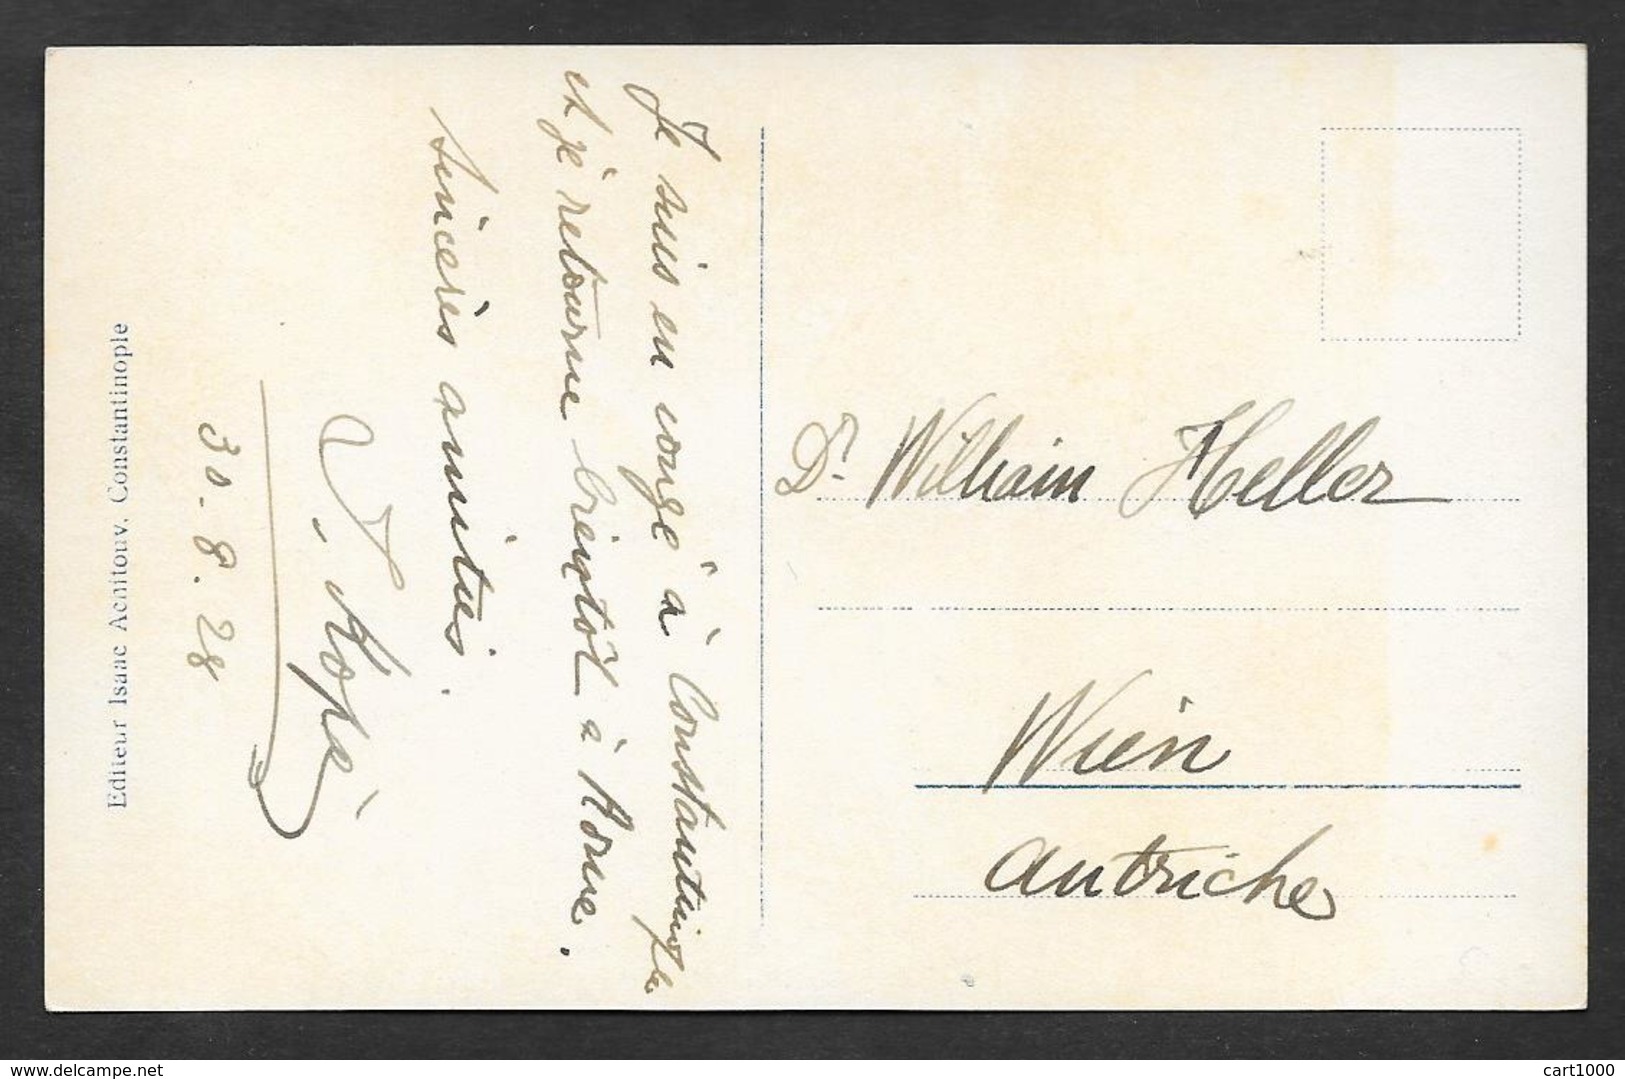 Je suis en congé à Constantinople
et je retourne bientôt à Rome.
Sincères amitiés.
30-8.28
Editeur Isaac Acnitouv, Constantinople
Dr. William Heller
Wien
Autriche
www.delcampe.net
cart1000